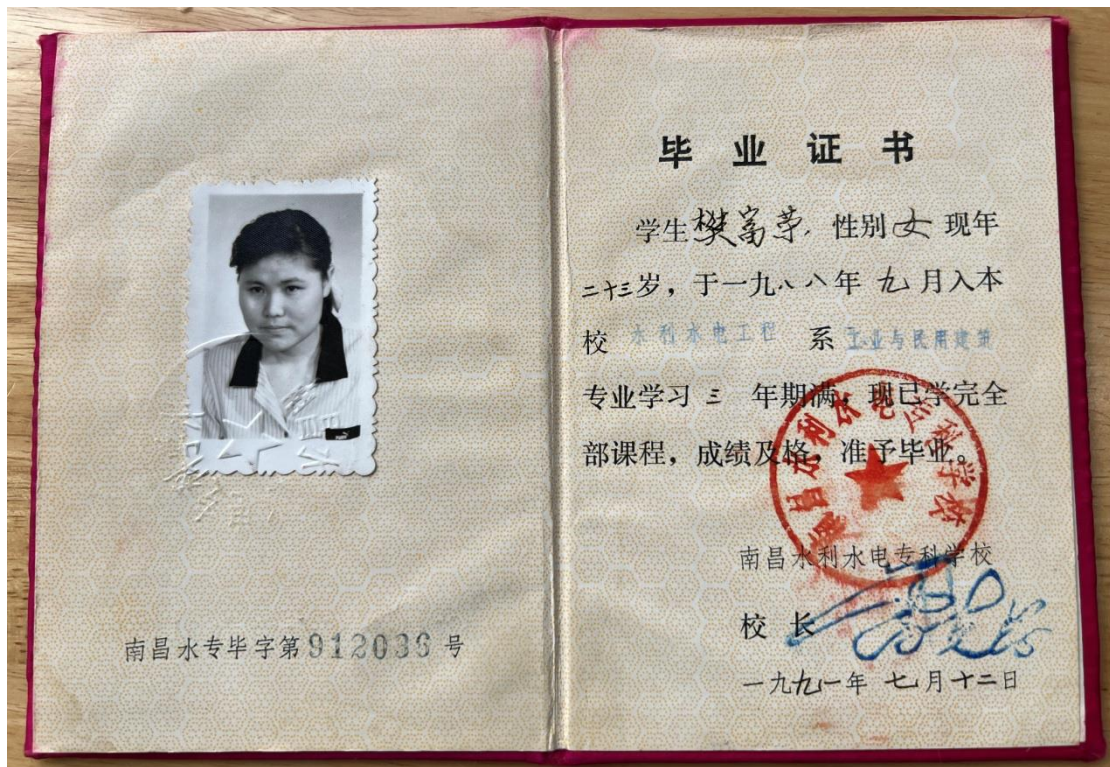 南昌水专毕字第912036号
毕业证书
学生樊富芽，性别女 现年
二十三岁，于一九八八年九月入本
校 水利水电工程 系 工业与民用建筑
专业学习三年期满，现已学完全
部课程，成绩及格，准予毕业。
南昌水利水电专科学校
南昌水利水电专科学校
校长
一九九一年七月十二日